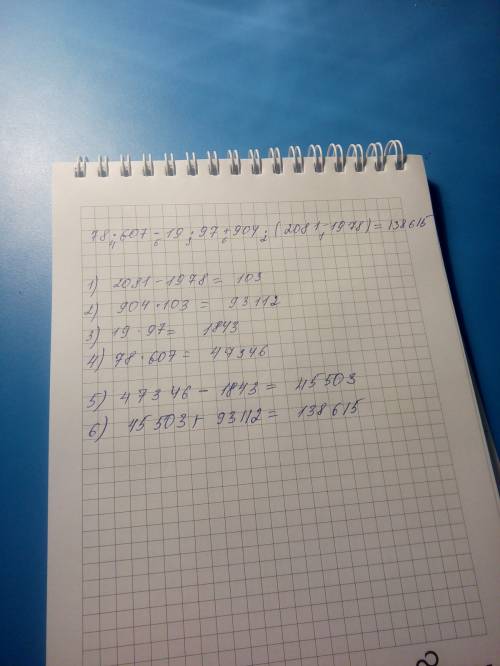 78·607-19·97+904·(2081-1978)=138615
4 6 3 6 2 1
1) 2081-1978= 103
2) 904·103 = 93112
3) 19·97= 1843
4) 78·607= 47346
5) 47346-1843= 45503
6) 45503+93112= 138615